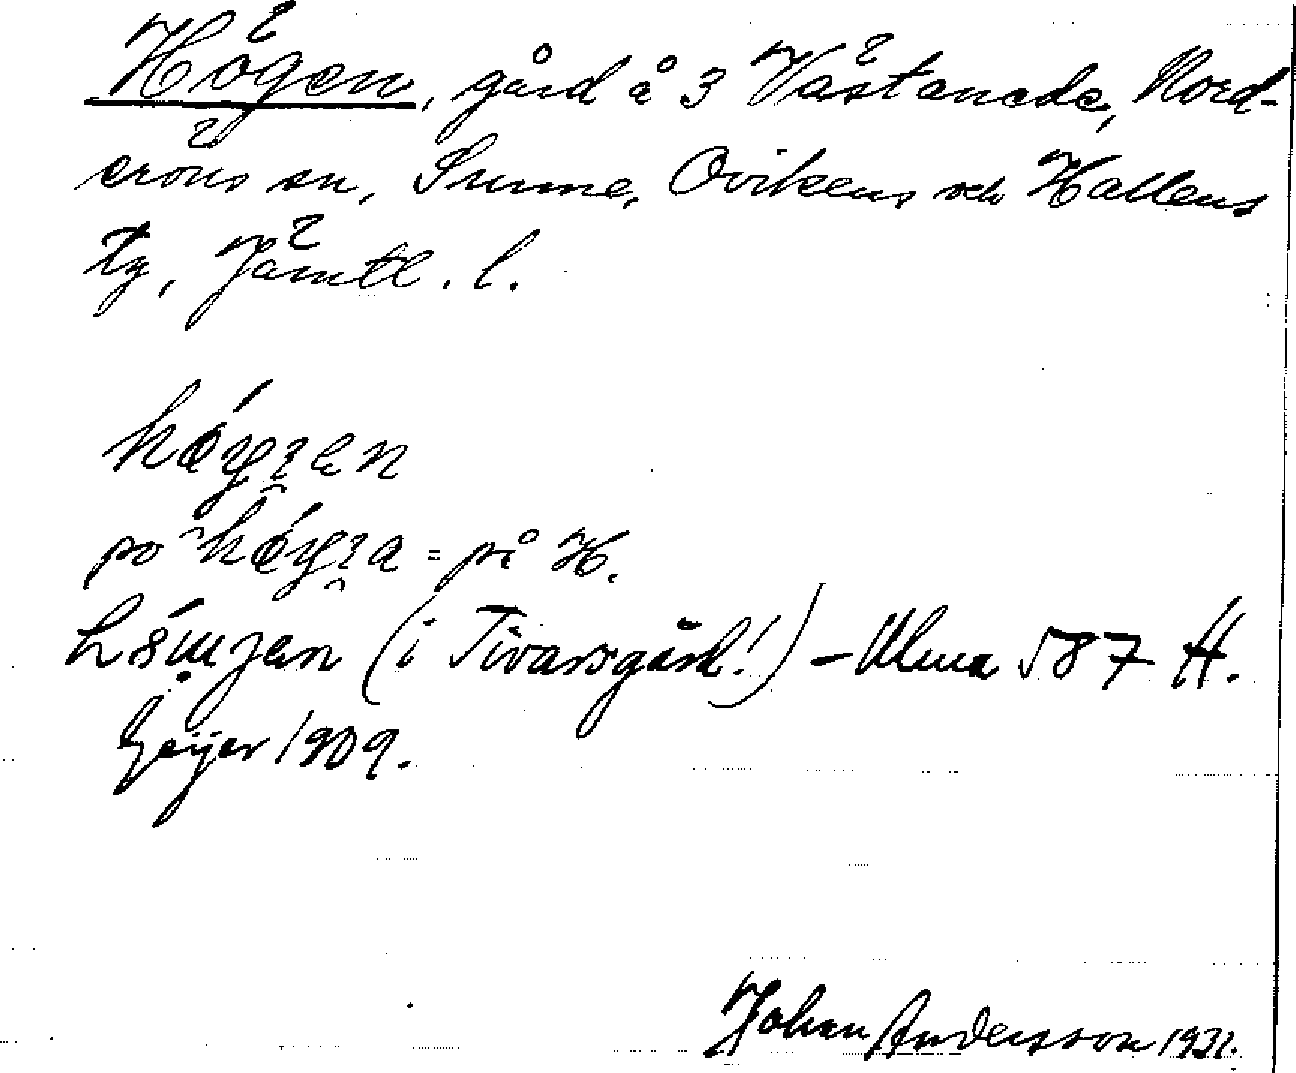 Högen, gård å 3 Västanede, Nord-
eröns sn, Sunne, Ovikens och Hallens
tg, Jämtl. l.
po = på H.
(i Tivarsgård!) – Ulma 587 H.
Geijer 1909.
Johan Andersson 1931.